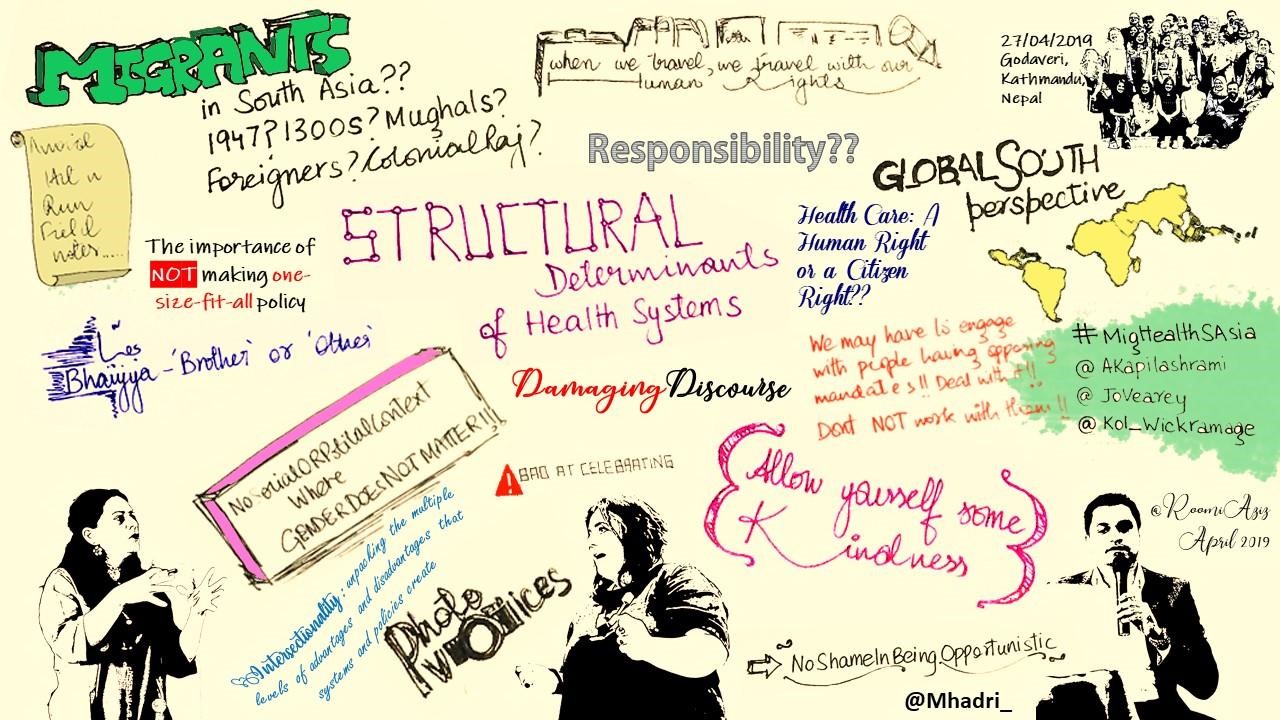 MIGRANTS
in South Asia??
1947? 1300s? Mughals?
Foreigners? Colonial Raj?
when we travel, we travel with our
Human Rights
27/04/2019
Godaveri,
Kathmandu,
Nepal
Avoid
Hit n
Run
Field
notes.....
The importance of
NOT making one-
size-fit-all policy
Responsibility??
STRUCTURAL
Determinants
of Health Systems
Health Care: A
Human Right
or a Citizen
Right??
GLOBAL SOUTH
perspective
Bhaiyya - 'Brother' or 'Other'
Damaging Discourse
We may have to engage
with people having opposing
mandates!! Deal with it!!
Dont NOT work with them!!
#MigHealthSAsia
@AKapilashrami
@JoVearey
@Kol_Wickramage
No Social OR Political Context
Where
GENDER DOES NOT MATTER!!!
BAD AT CELEBRATING
Allow yourself some
Kindness
@RoomiAziz
April 2019
Intersectionality: unpacking the multiple
levels of advantages and disadvantages that
systems and policies create
Photo
VOICES
No Shame In Being Opportunistic
@Mhadri_